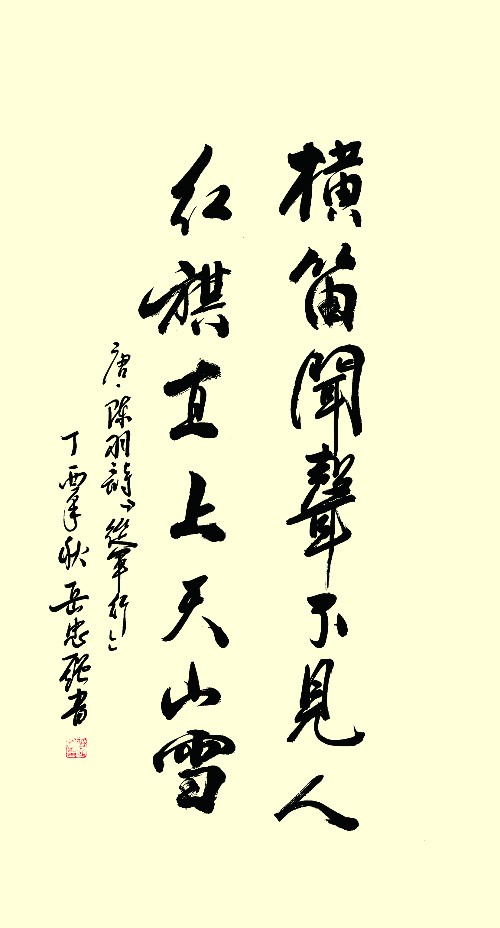 橫笛聞聲不見人
紅旗直上天山雪
唐·陳羽詩《從軍行》
丁酉年秋岳忠强書